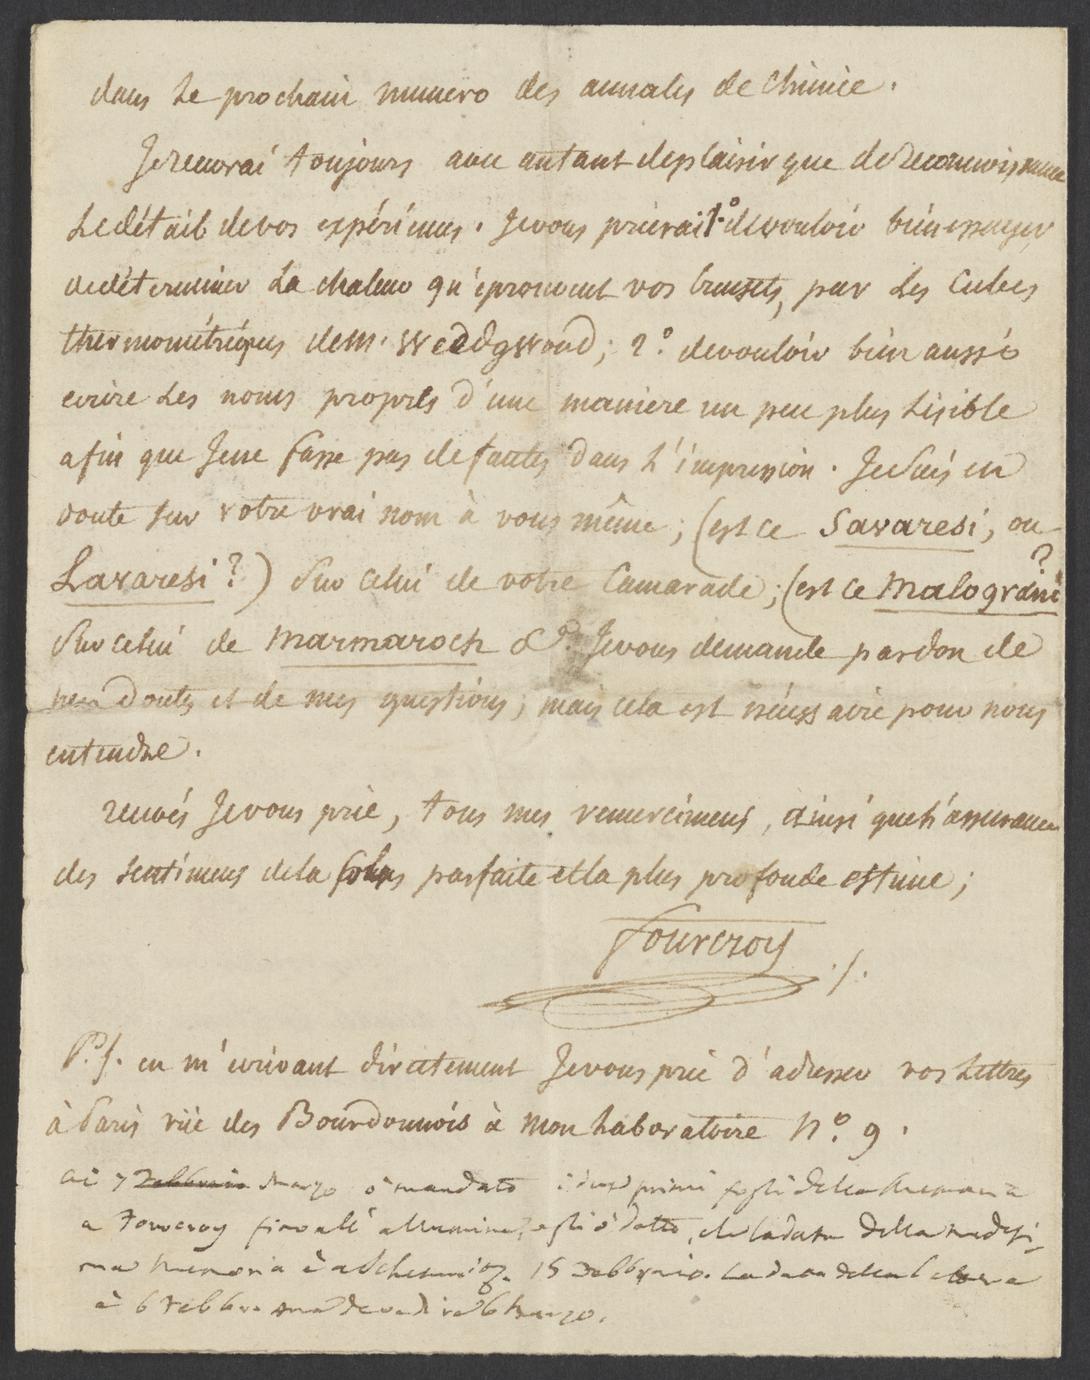 dans le prochain numero des annales de chimie.
Je recevrai toujours avec autant de plaisir que de reconnoissance
le détail de vos expériences. Je vous prierai 1.° de vouloir bien essayer
de déterminer la chaleur qu'éprouvent vos creusets, par les Cubes
thermométriques de M. Weedgwood; 2.° de vouloir bien aussi
ecrire les noms propres d'une maniere un peu plus lisible
afin que Je ne fasse pas de fautes dans l'impression. Je suis en
doute sur votre vrai nom à vous même; (est ce Savaresi, ou
Lavaresi?) sur celui de votre Camarade; (est ce Malograni?
sur celui de Marmaroch &a. Je vous demande pardon de
mes doutes et de mes questions; mais cela est nécessaire pour nous
entendre.
recevés Je vous prie, tous mes remercimens, ainsi que l'assurance
des sentimens de la plus parfaite et la plus profonde estime;
Fourcroy ./.
P.S. en m'ecrivant directement Je vous prie d'adresser vos lettres
à Paris rüe des Bourdonnois à mon Laboratoire N.° 9.
ai 7 Febbraio Marzo ò mandato i due primi fogli della Memoria
a Fourcroy fino all' egli ò detto, che la data della medesi-
ma memoria è a Schemniz. 15 Febbraio. La data della lettera
è 6 Febbr. ma deve dire 6 Marzo.